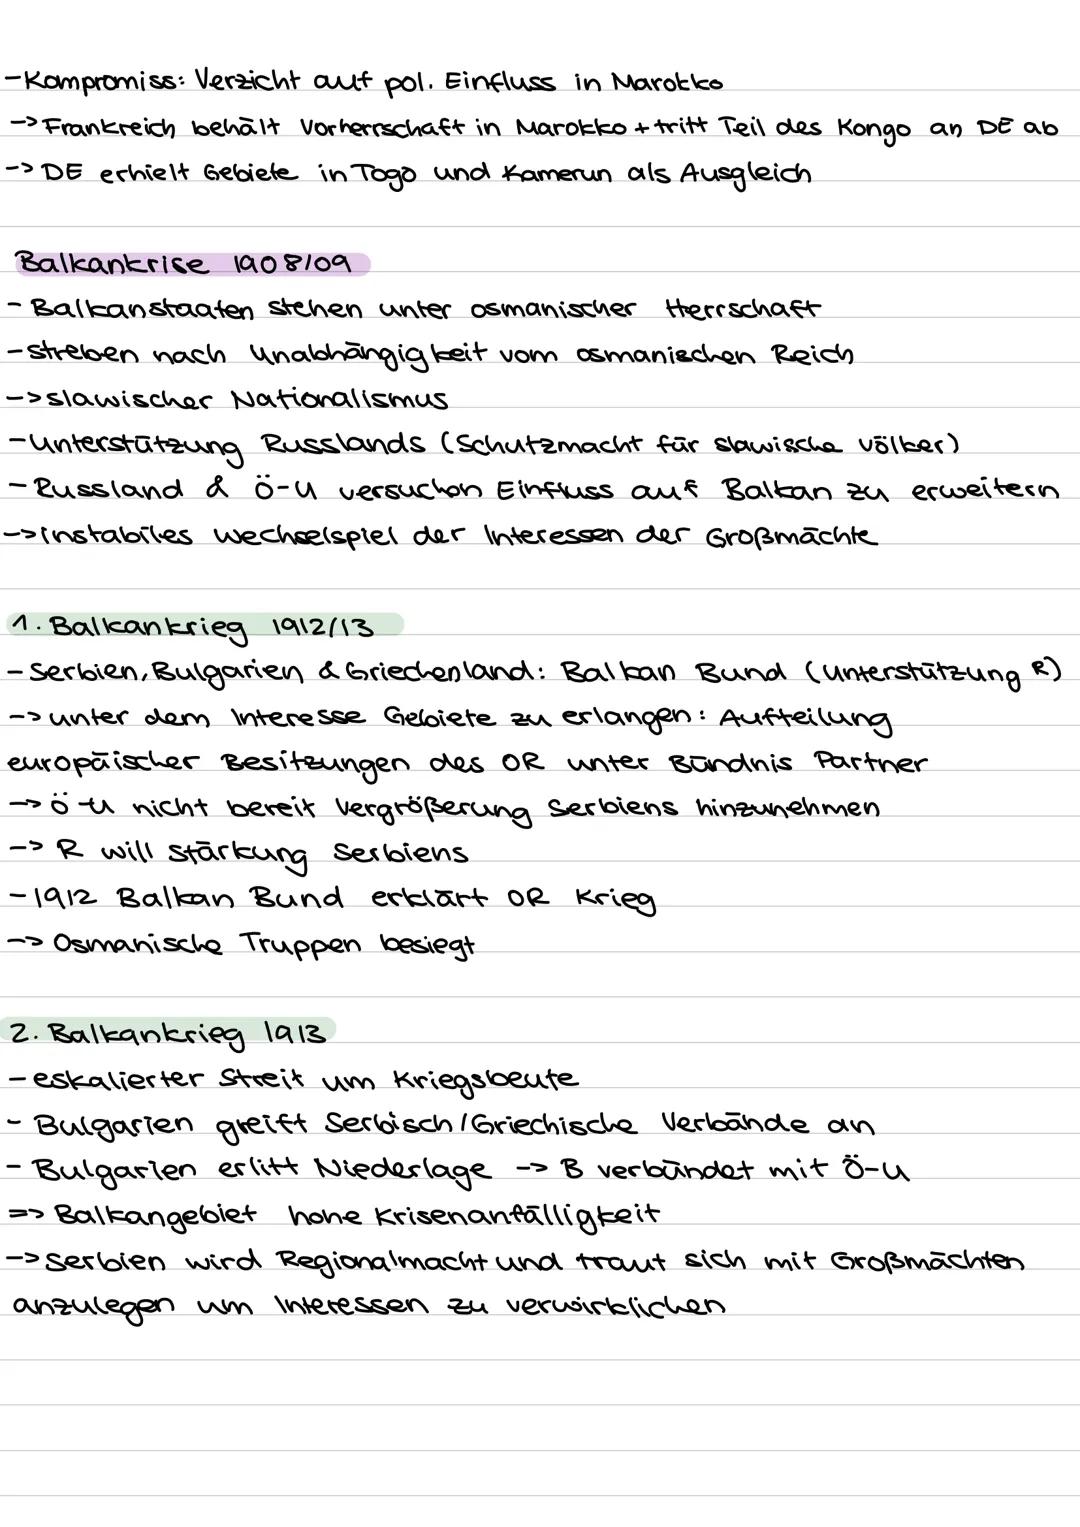 - Kompromiss: Verzicht auf pol. Einfluss in Marokko
-> Frankreich behält Vorherrschaft in Marokko + tritt Teil des Kongo an DE ab
-> DE erhielt Gebiete in Togo und Kamerun als Ausgleich
Balkankrise 1908/09
- Balkanstaaten stehen unter osmanischer Herrschaft
- streben nach Unabhängigkeit vom osmanischen Reich
-> slawischer Nationalismus
- Unterstützung Russlands (Schutzmacht für slawische Völker)
- Russland & Ö-U versuchen Einfluss auf Balkan zu erweitern
-> instabiles Wechselspiel der Interessen der Großmächte
1. Balkankrieg 1912/13
- Serbien, Bulgarien & Griechenland: Balkan Bund (Unterstützung R)
-> unter dem Interesse Gebiete zu erlangen: Aufteilung
europäischer Besitzungen des OR unter Bündnis Partner
-> Ö-U nicht bereit Vergrößerung Serbiens hinzunehmen
-> R will Stärkung Serbiens
- 1912 Balkan Bund erklärt OR Krieg
-> Osmanische Truppen besiegt
2. Balkankrieg 1913
- eskalierter Streit um Kriegsbeute
- Bulgarien greift Serbisch/Griechische Verbände an
- Bulgarien erlitt Niederlage -> B verbündet mit Ö-U
=> Balkangebiet hohe Krisenanfälligkeit
-> Serbien wird Regionalmacht und traut sich mit Großmächten
anzulegen um Interessen zu verwirklichen